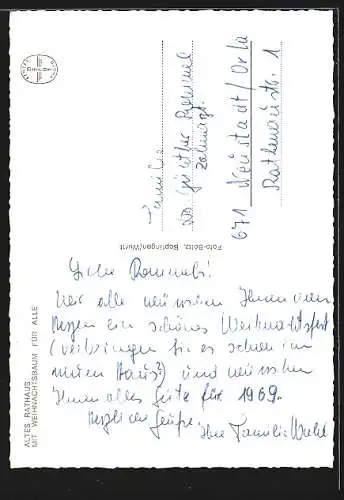 ALTES RATHAUS
MIT WEIHNACHTSBAUM FÜR ALLE
Foto-Boltz, Bopfingen/Württ.
Familie
Günther Rommel
Zahnarzt
671 Neustadt/Orla
Rathausstr. 1
Liebe Rommels!
Wir alle wünschen Ihnen von
Herzen ein schönes Weihnachtsfest
(verbringen Sie es schon im
neuen Haus?) und wünschen
Ihnen alles Gute für 1969.
Herzliche Grüße
Ihre Familie